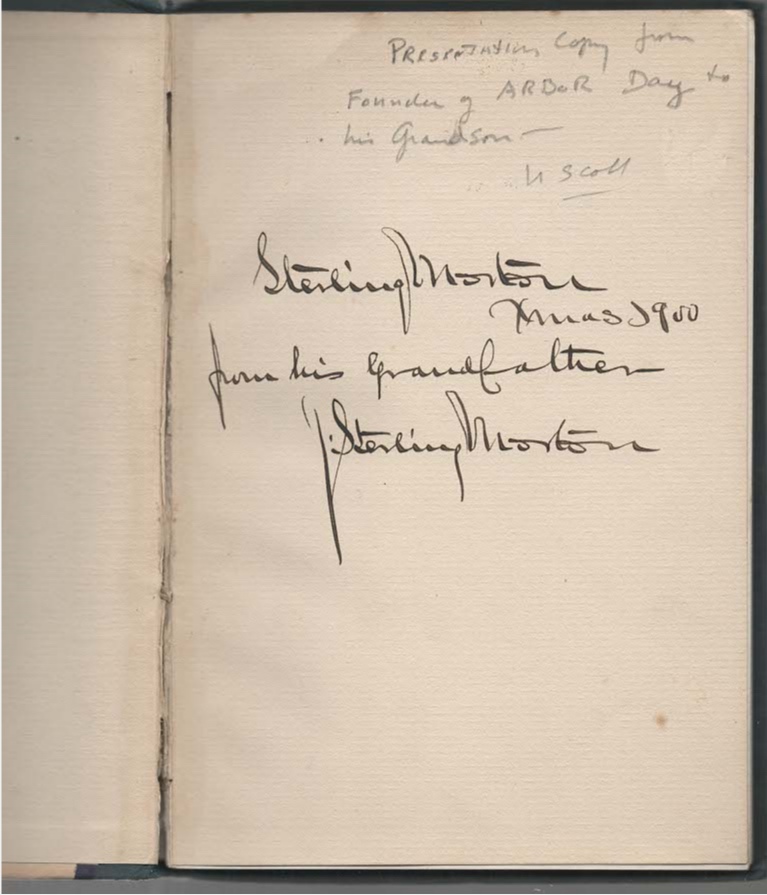 PRESENTATION Copy from
Founder of ARBOR Day to
his Grandson —
W Scott
Sterling Morton
Xmas 1900
from his grandfather
J. Sterling Morton